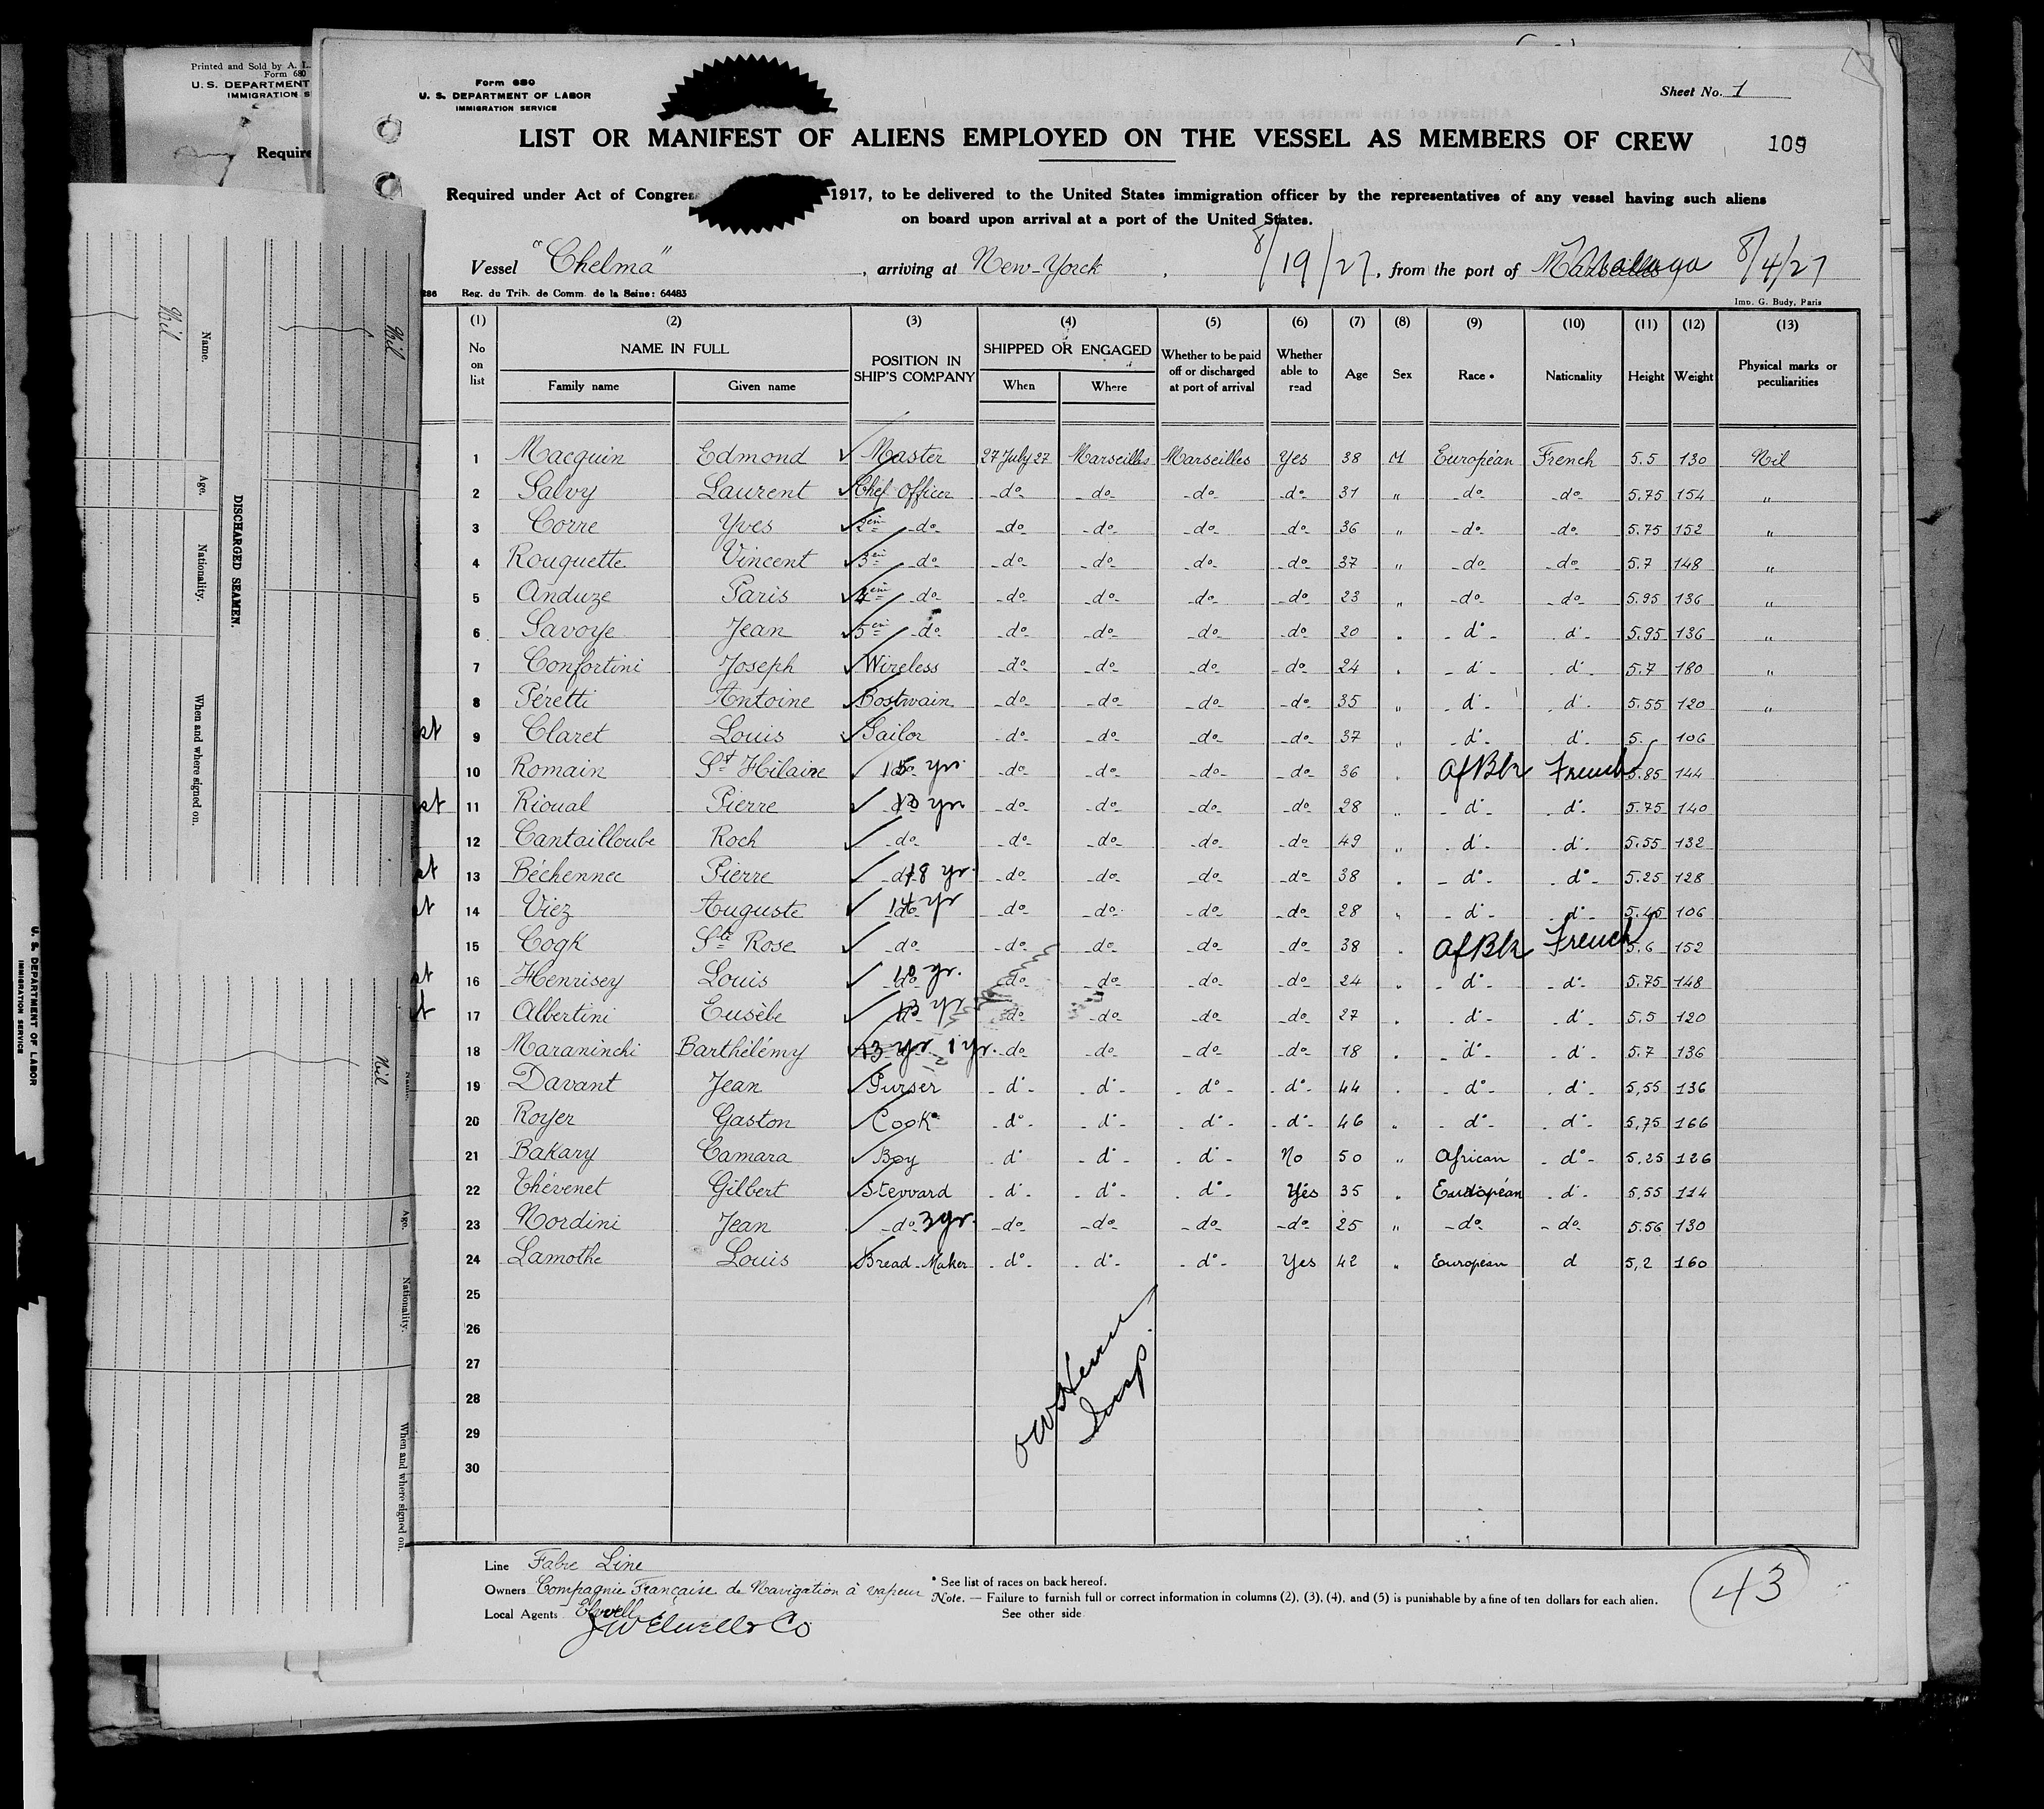 Printed and Sold by A. L.
Form 680
U. S. DEPARTMENT
IMMIGRATION S
Require
Form 680
U. S. DEPARTMENT OF LABOR
IMMIGRATION SERVICE
Sheet No. 1
LIST OR MANIFEST OF ALIENS EMPLOYED ON THE VESSEL AS MEMBERS OF CREW
109
Required under Act of Congres 1917, to be delivered to the United States immigration officer by the representatives of any vessel having such aliens
on board upon arrival at a port of the United States.
Vessel "Chelma", arriving at New-Yorck, 8/19/27, from the port of Malaga 8/4/27
286 Reg. du Trib. de Comm. de la Seine: 64483
Imp. G. Budy, Paris
(1) (2) (3) (4) (5) (6) (7) (8) (9) (10) (11) (12) (13)
No on list NAME IN FULL POSITION IN SHIP'S COMPANY SHIPPED OR ENGAGED Whether to be paid off or discharged at port of arrival Whether able to read Age Sex Race • Nationality Height Weight Physical marks or peculiarities
Family name Given name When Where
1 Macquin Edmond ✓ Master 27 July 27 Marseilles Marseilles Yes 38 M Européan French 5.5 130 Nil
2 Salvy Laurent ✓ Chef Officer -do- -do- -do- -do- 31 " -do- -do- 5.75 154 "
3 Corre Yves ✓ 2em -do- -do- -do- -do- -do- 36 " -do- -do- 5.75 152 "
4 Rouquette Vincent ✓ 3em -do- -do- -do- -do- -do- 37 " -do- -do- 5.7 148 "
5 Anduze Paris ✓ 4em -do- -do- -do- -do- -do- 23 " -do- -do- 5.95 136 "
6 Savoye Jean ✓ 5em -do- -do- -do- -do- -do- 20 " -do- do 5.95 136 "
7 Confortini Joseph ✓ Wireless -do- -do- -do- -do- 24 " -do- do 5.7 180 "
8 Péretti Antoine ✓ Bostwain -do- -do- -do- -do- 35 " -do- do 5.55 120 "
st 9 Claret Louis ✓ Sailor -do- -do- -do- -do- 37 " -do- do 5. 106
10 Romain St Hilaire ✓ do 15 yr. -do- -do- -do- -do- 36 " AfBlk French 5.85 144
st 11 Rioual Pierre ✓ do 13 yr -do- -do- -do- -do- 28 " -do- do 5.75 140
12 Cantailloube Roch ✓ do -do- -do- -do- -do- 49 " -do- do 5.55 132
st 13 Béchennec Pierre ✓ do 18 yr. -do- -do- -do- -do- 38 " -do- do 5.25 128
st 14 Viez Auguste ✓ do 14 yr -do- -do- -do- -do- 28 " -do- do 5.45 106
15 Cogk Ste Rose ✓ do -do- -do- -do- -do- 38 " AfBlk French 5.6 152
st 16 Henrisey Louis ✓ do 10 yr. -do- -do- -do- -do- 24 " -do- do 5.75 148
st 17 Albertini Eusèbe ✓ do 13 yr -do- -do- -do- -do- 27 " -do- do 5.5 120
18 Maraninchi Barthélémy ✓ 13 yr 1 yr. -do- -do- -do- -do- 18 " -do- do 5.7 136
19 Davant Jean ✓ Purser -do- -do- -do- -do- 44 " -do- do 5,55 136
20 Royer Gaston ✓ Cook -do- -do- -do- -do- 46 " -do- do 5,75 166
21 Bakary Camara ✓ Boy -do- -do- -do- No 50 " African -do- 5,25 126
22 Thévenet Gilbert ✓ Stevvard -do- -do- -do- Yés 35 " Européan do 5,55 114
23 Nordini Jean ✓ -do- 3 yr. -do- -do- -do- -do- 25 " -do- -do- 5.56 130
24 Lamothe Louis ✓ Bread-Maker -do- -do- -do- Yes 42 " European d 5,2 160
25
26
27
28
29
30
Insp.
Line Fabre Line
Owners Compagnie Française de Navigation à vapeur
Local Agents Elwell
JW Elwell & Co
* See list of races on back hereof.
Note. — Failure to furnish full or correct information in columns (2), (3), (4), and (5) is punishable by a fine of ten dollars for each alien.
See other side
43
DISCHARGED SEAMEN.
Name. Age. Nationality. When and where signed on.
Nil
Nil
Name. Age. Nationality. When and where signed on.
Nil
U. S. DEPARTMENT OF LABOR
IMMIGRATION SERVICE